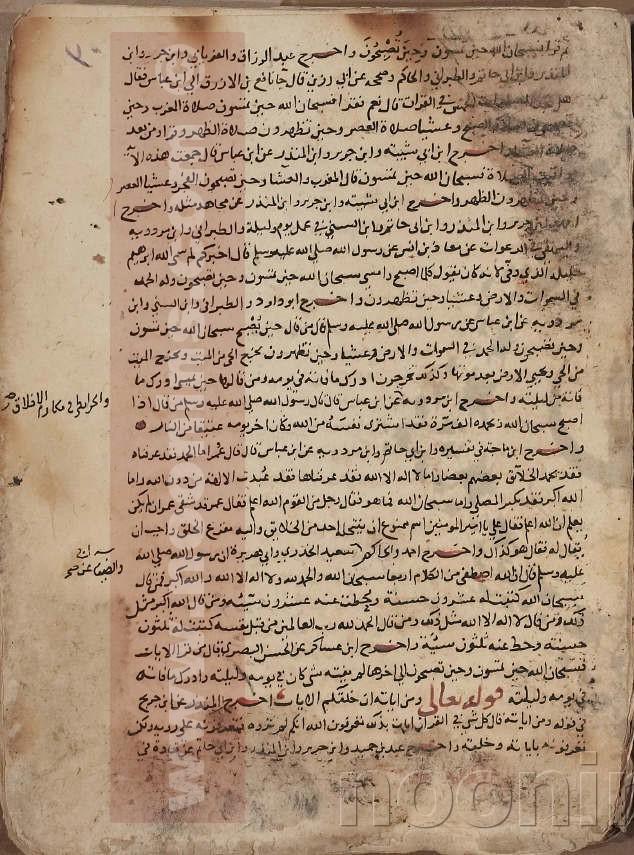 ثم قرا فسبحان الله حين تمسون وحين تصبحون واخرج عبد الرزاق والفريابي وابن جرير وابن
المنذر وابن ابي حاتم والطبراني والحاكم وصححه عن ابي رزين قال جا نافع بن الازرق الى ابن عباس فقال
هل تجد الصلوات الخمس في القران قال نعم فقرا فسبحان الله حين تمسون صلاة المغرب وحين
تصبحون صلاة الصبح وعشيا صلاة العصر وحين تظهرون صلاة الظهر وقرا ومن بعد
صلاة واخرج ابن ابي شيبة وابن جرير وابن المنذر عن ابن عباس قال جمعت هذه الآية
الصلاة فسبحان الله حين تمسون قال المغرب والعشا وحين تصبحون الفجر وعشيا العصر
وحين تظهرون الظهر واخرج ابن ابي شيبة وابن جرير وابن المنذر عن مجاهد مثله واخرج
احمد وابن جرير وابن المنذر وابن ابي حاتم وابن السني في عمل يوم وليلة والطبراني وابن مردويه
والبيهقي في الدعوات عن معاذ بن انس عن رسول الله صلى الله عليه وسلم قال اخبركم لم سمى الله ابرهيم
خليله الذي وفى لانه كان يقول كلما اصبح وامسى سبحان الله حين تمسون وحين تصبحون وله الحمد
في السموات والارض وعشيا وحين تظهرون واخرج ابو داود والطبراني وابن السني وابن
مردويه عن ابن عباس عن رسول الله صلى الله عليه وسلم قال من قال حين يصبح سبحان الله حين تمسون
وحين تصبحون وله الحمد في السموات والارض وعشيا وحين تظهرون يخرج الحي من الميت ويخرج الميت
من الحي ويحيي الارض بعد موتها وكذلك تخرجون ادرك ما فاته في يومه ومن قالها حين يمسي ادرك ما
فاته من ليلته واخرج ابن مردويه عن ابن عباس قال قال رسول الله صلى الله عليه وسلم من قال اذا
اصبح سبحان الله وبحمده الف مرة فقد اشترى نفسه من الله وكان اخر يومه عتيقا من النار
واخرج ابن ماجة في تفسيره وابن ابي حاتم وابن مردويه عن ابن عباس قال قال عمر اما الحمد فقد عرفناه
فقد يحمد الخلائق بعضهم بعضا واما لا اله الا الله فقد عرفناها فقد عبدت الالهة من دون الله واما
الله اكبر فقد يكبر المصلي واما سبحان الله فما هو فقال رجل من القوم الله اعلم فقال عمر قد شقي عمر ان لم يكن
يعلم ان الله اعلم فقال علي يا امير المومنين اسم ممنوع ان ينتحله احد من الخلائق واليه مفزع الخلق واحب ان
يقال له فقال هو كذاك واخرج احمد والحاكم سعيد الخدري وابي هريرة ان رسول الله صلى الله
عليه وسلم قال ان الله اصطفى من الكلام اربعا سبحان الله والحمد لله ولا اله الا الله والله اكبر فمن قال
سبحان الله كتبت له عشرون حسنة وحطت عنه عشرون سيئة ومن قال الله اكبر مثل
ذلك ومن قال لا اله الا الله مثل ذلك ومن قال الحمد لله رب العالمين من قبل نفسه كتبت له ثلثون
حسنة وحط عنه ثلثون سيئة واخرج ابن عساكر عن الحسن البصري قال من قرا الايات
فسبحان الله حين تمسون وحين تصبحون الى اخرها لم يفته شي كان في يومه وليلته وادرك ما فاته
في يومه وليلته قوله تعالى ومن اياته ان خلقكم الايات اخرج المنذر عن ابن جريج
في قوله ومن اياته قال كل شي في القران ايات بذلك تعرفون الله انكم لن تروه فتعرفونه على رويه ولكن
تعرفونه باياته وخلقه واخرج عبد بن حميد وابن جرير وابن المنذر وابن ابي حاتم عن قتادة في
والخرايطي في مكارم الاخلاق صح
والضيا عن ابي صح
noonir